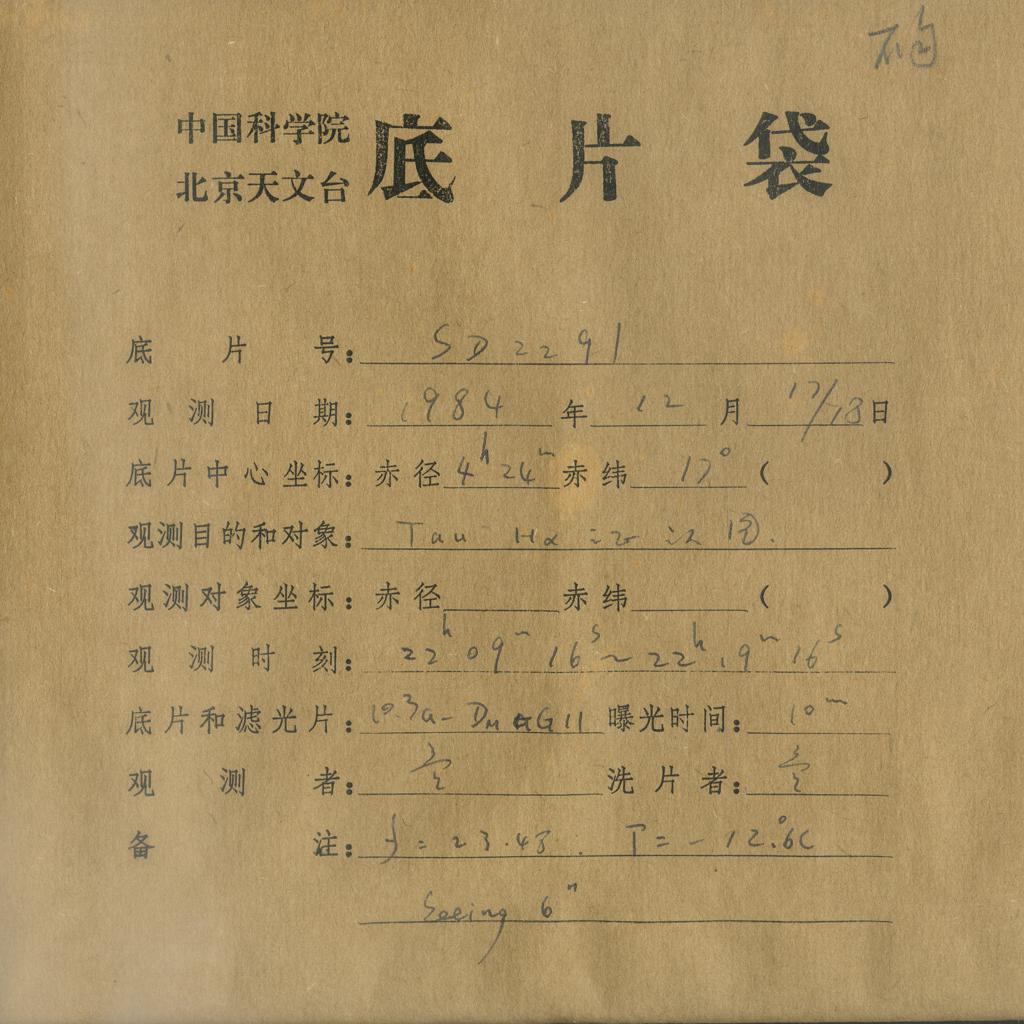 中国科学院
北京天文台
底片袋
底片号: SD2291
观测日期: 1984 年 12 月 17/18 日
底片中心坐标: 赤径 4h 24m 赤纬 17° ( )
观测目的和对象: Tau Hα
观测对象坐标: 赤径 赤纬 ( )
观测时刻: 22h 09m 16s ~ 22h 19m 16s
底片和滤光片: GG11 曝光时间: 10m
观测者: 洗片者:
备注: f = 23.43. T = -12.°6C
Seeing 6"